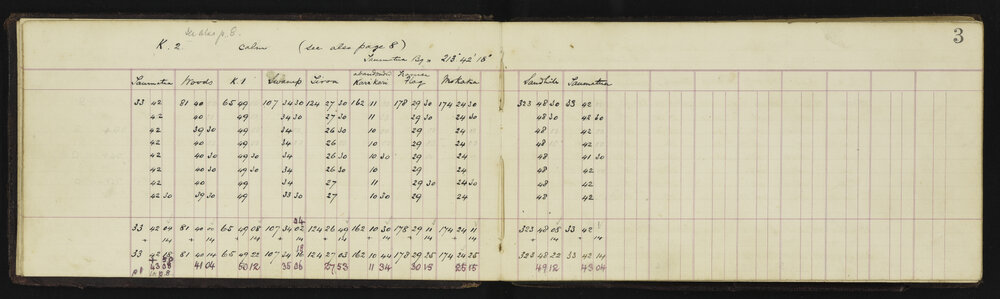 see also p. 8.
3
K. 2 calm (see also page 8)
Taumatua Bg = 213° 42' 15"
Taumatua Woods K 1 Swamp Tiroa abandoned Karakari Flag Mokatia Sandhills Taumatua
33 42 81 40 65 49 107 34 30 124 27 30 162 11 178 29 30 174 24 30 323 48 30 33 42
42 40 49 34 30 27 30 11 29 30 24 30 48 30 42 30
42 39 30 49 34 26 30 10 29 24 48 42
42 40 49 34 26 10 29 24 48 42
42 40 30 49 30 34 26 30 10 30 29 24 48 41 30
42 40 30 49 30 34 26 30 10 29 24 48 42
42 40 49 34 27 11 29 30 24 30 48 42
42 30 39 30 49 33 30 27 10 30 29 24 48 42
04
33 42 04 81 40 00 65 49 08 107 34 02 124 26 49 162 10 30 178 29 11 174 24 11 323 48 08 33 42 1
+ 14 14 + 14 + 14 + 14 + 14 + 14 + 14 + 14 + 14
18
33 42 81 40 14 65 49 22 107 34 16 124 27 03 162 10 44 178 29 25 174 24 25 323 48 22 33 42 14
43 08 41 04 50 12 35 06 27 53 11 34 30 15 25 15 49 12 43 04
p 8